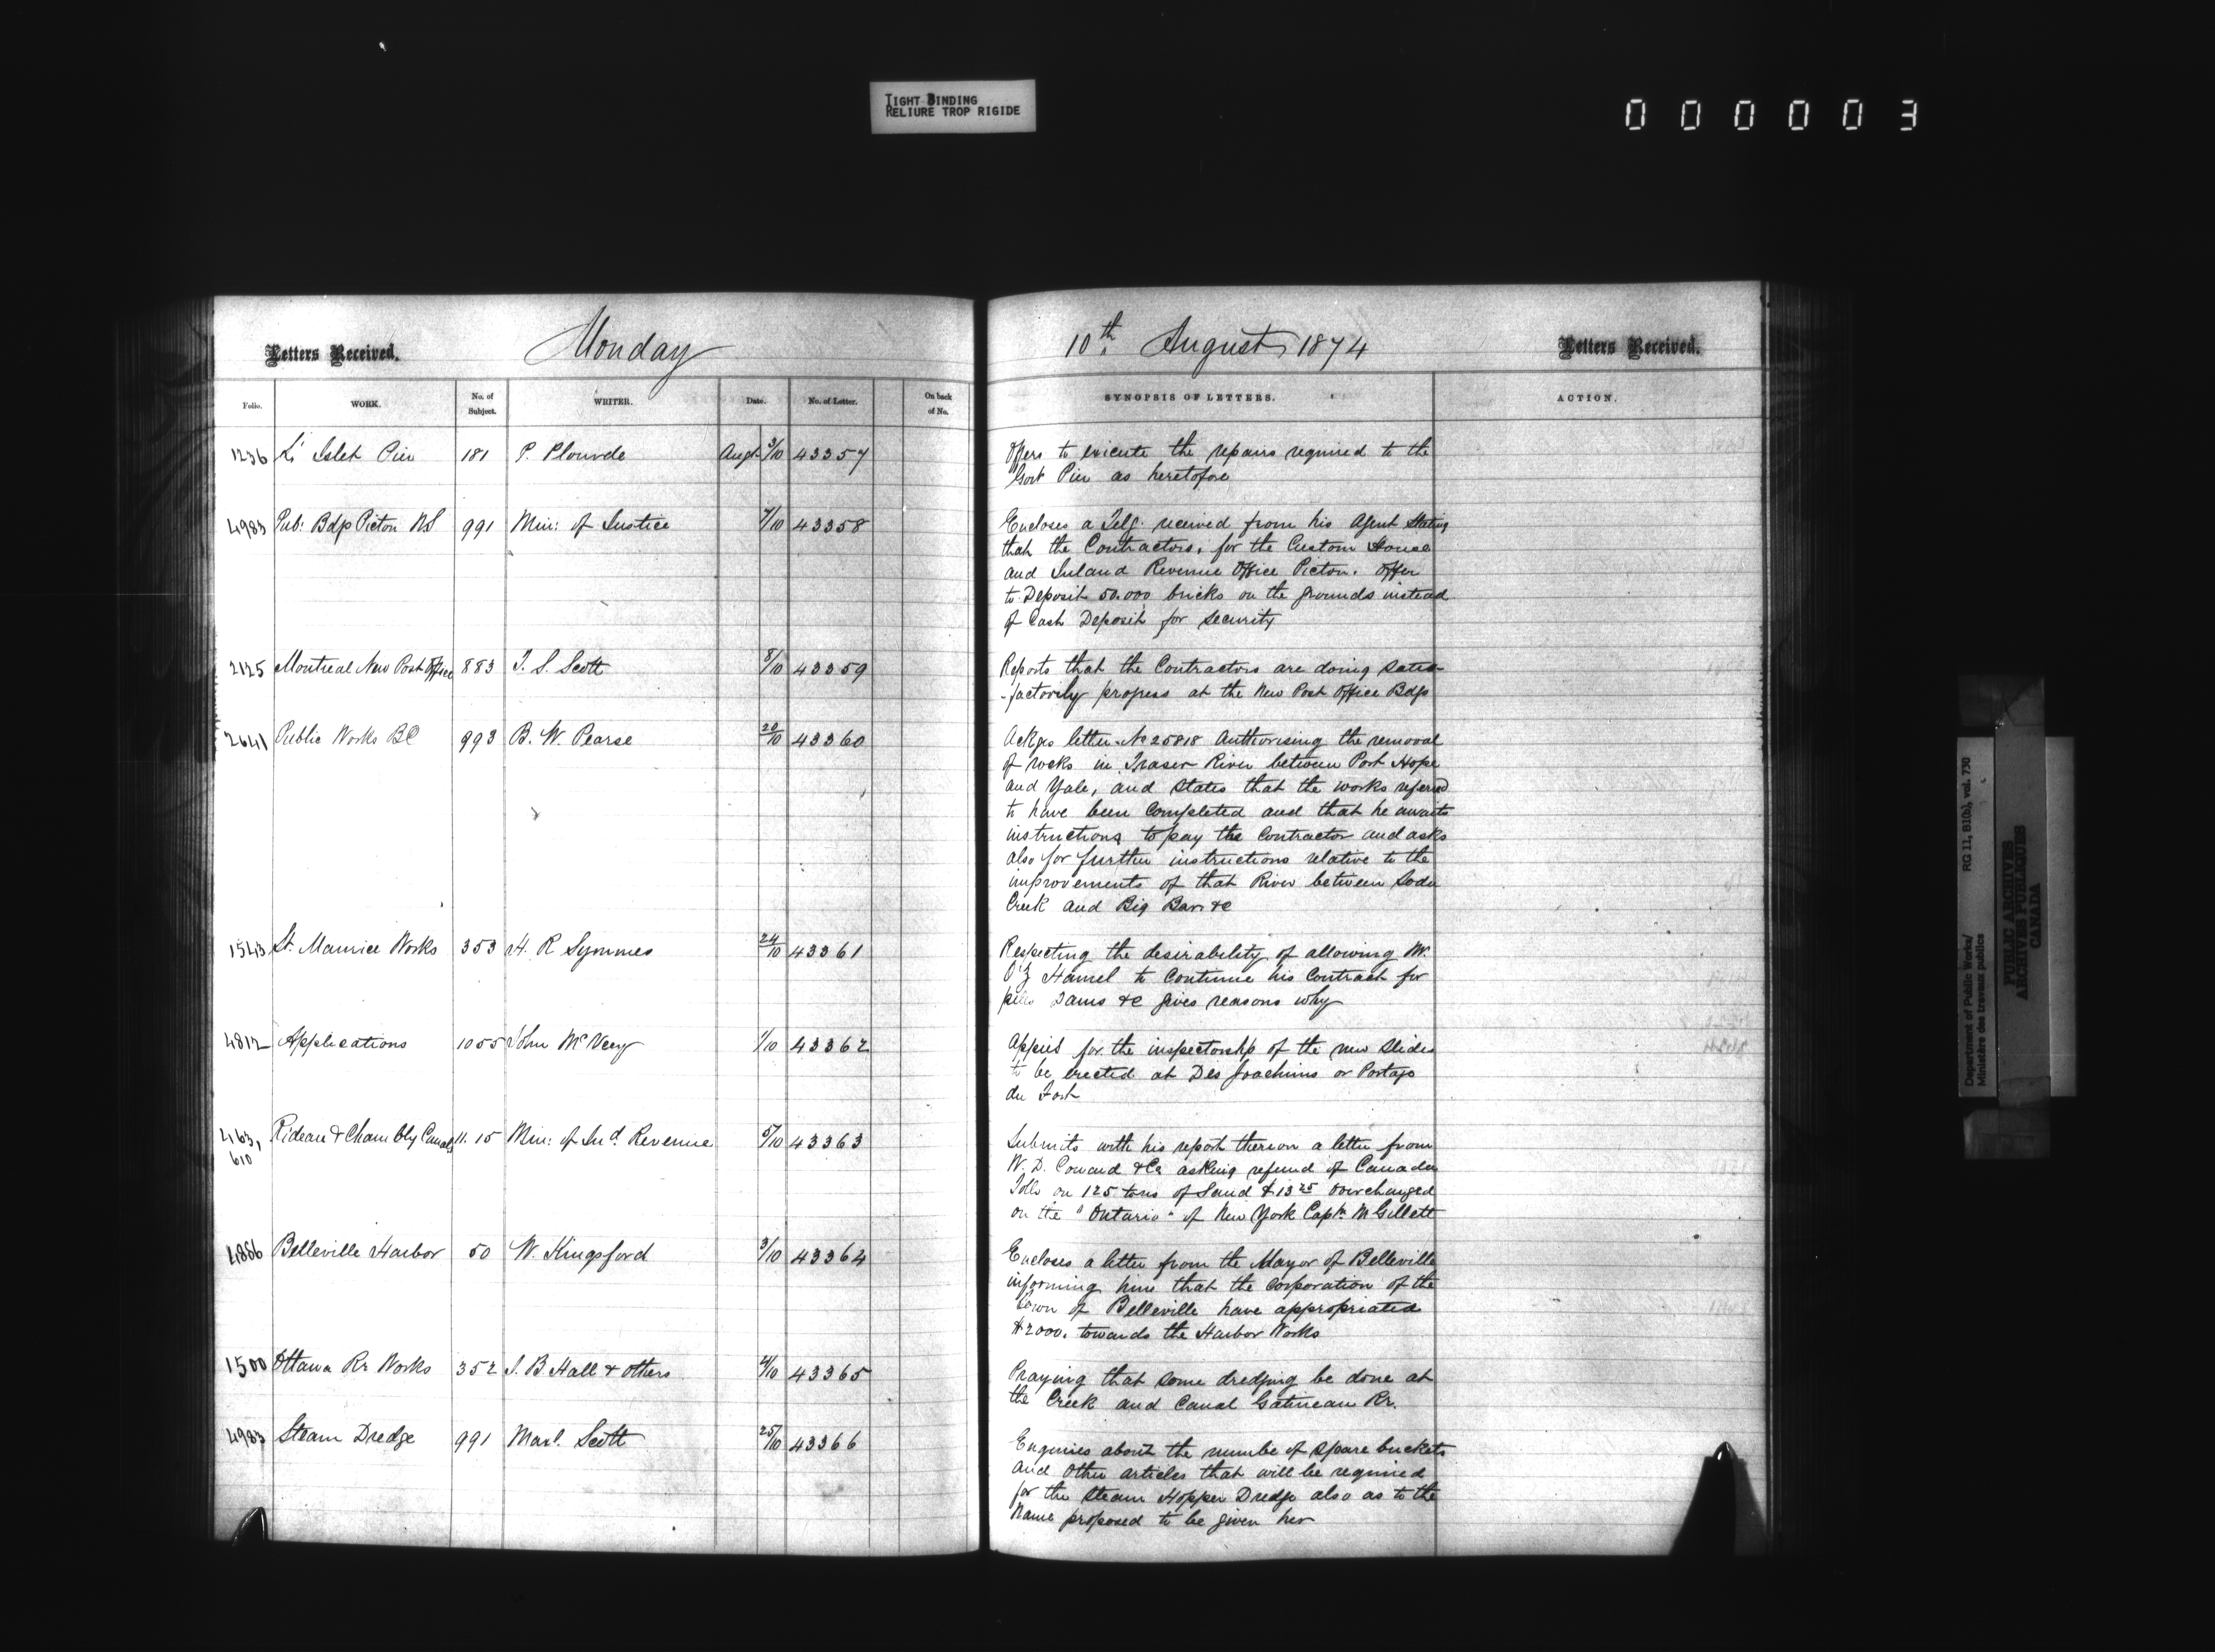 TIGHT BINDING
RELIURE TROP RIGIDE
000003
Letters Received.
Monday
10th August, 1874
Letters Received.
Folio.
WORK.
No. of Subject.
WRITER.
Date.
No. of Letter.
On back of No.
SYNOPSIS OF LETTERS.
ACTION.
1236 L'Islet Pier 181 P. Plourde Augt 3/10 43357
Offers to execute the repairs required to the
Govt Pier as heretofore
4983 Pub: Bdgs Picton NS 991 Min: of Justice 7/10 43358
Encloses a Telg. received from his Agent stating
that the Contractors, for the Custom House
and Inland Revenue Office Picton. offer
to Deposit 50.000 bricks on the grounds instead
of Cash Deposit for security
2125 Montreal New Post Office 883 T. S. Scott 8/10 43359
Reports that the Contractors are doing satis-
-factorily progress at the New Post Office Bdgs
2641 Public Works BC 993 B. W. Pearse 20/10 43360
Ackgs letter No 25818 Authorising the removal
of rocks in Fraser River between Port Hope
and Yale, and states that the works referred
to have been completed and that he awaits
instructions to pay the Contractor and asks
also for further instructions relative to the
improvements of that River between Soda
Creek and Big Bar &c
1543 St. Maurice Works 353 H. R Symmes 24/10 43361
Respecting the desirability of allowing Mr.
Hamel to continue his Contract for
Dams &c gives reasons why
4812 Applications 1055 John McVeey 1/10 43362
Applies for the inspectorship of the new Slides
to be erected at Des Joachims or Portage
du Fort
463, 610 Rideau & Chambly Canals 11. 15 Min: of Ind Revenue 5/10 43363
Submits with his report thereon a letter from
W. D. Coward & Co asking refund of Canada
Tolls on 125 tons of Sand $13 25 overcharged
on the "Ontario" of New York Capt. McGillett
4886 Belleville Harbor 50 W. Kingsford 3/10 43364
Encloses a letter from the Mayor of Belleville
informing him that the Corporation of the
town of Belleville have appropriated
$2000. towards the Harbor Works
1500 Ottawa Rr Works 352 J. B Hall & others 4/10 43365
Praying that some dredging be done at
the Creek and Canal Gatineau Rr.
4983 Steam Dredge 991 Scott 25/10 43366
Enquiries about the numbe of spare buckets
and other articles that will be required
for the Steam Hopper Dredge also as to the
Name proposed to be given her
Department of Public Works/
Ministère des travaux publics
RG 11, B1(b), vol. 730
PUBLIC ARCHIVES
ARCHIVES PUBLIQUES
CANADA